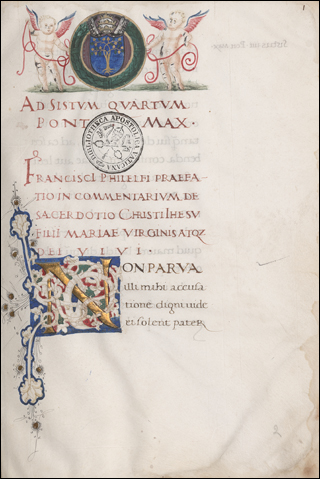 1
AD SISTVM QVARTVM
PONT MAX.
BIBLIOTHECA APOSTOLICA VATICANA
FRANCISCI PHILELFI PRAEFA
TIO IN COMMENTARIVM DE
SACERDOTIO CHRISTI IHESV
FILII MARIAE VIRGINIS ATQ
DEI VIVI.
NON PARVA
illi mihi accusa
tione digni uide
ri solent pater
2